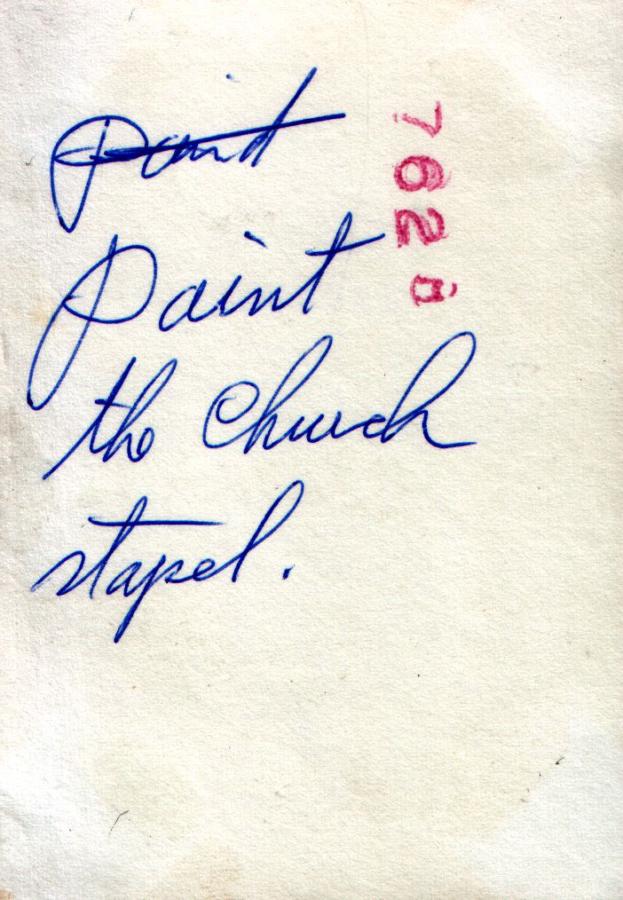 paint
Paint
the Church
stapel.
762